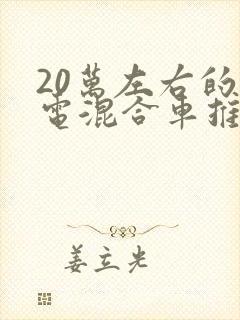 20萬左右的
電混合車推
姜立光